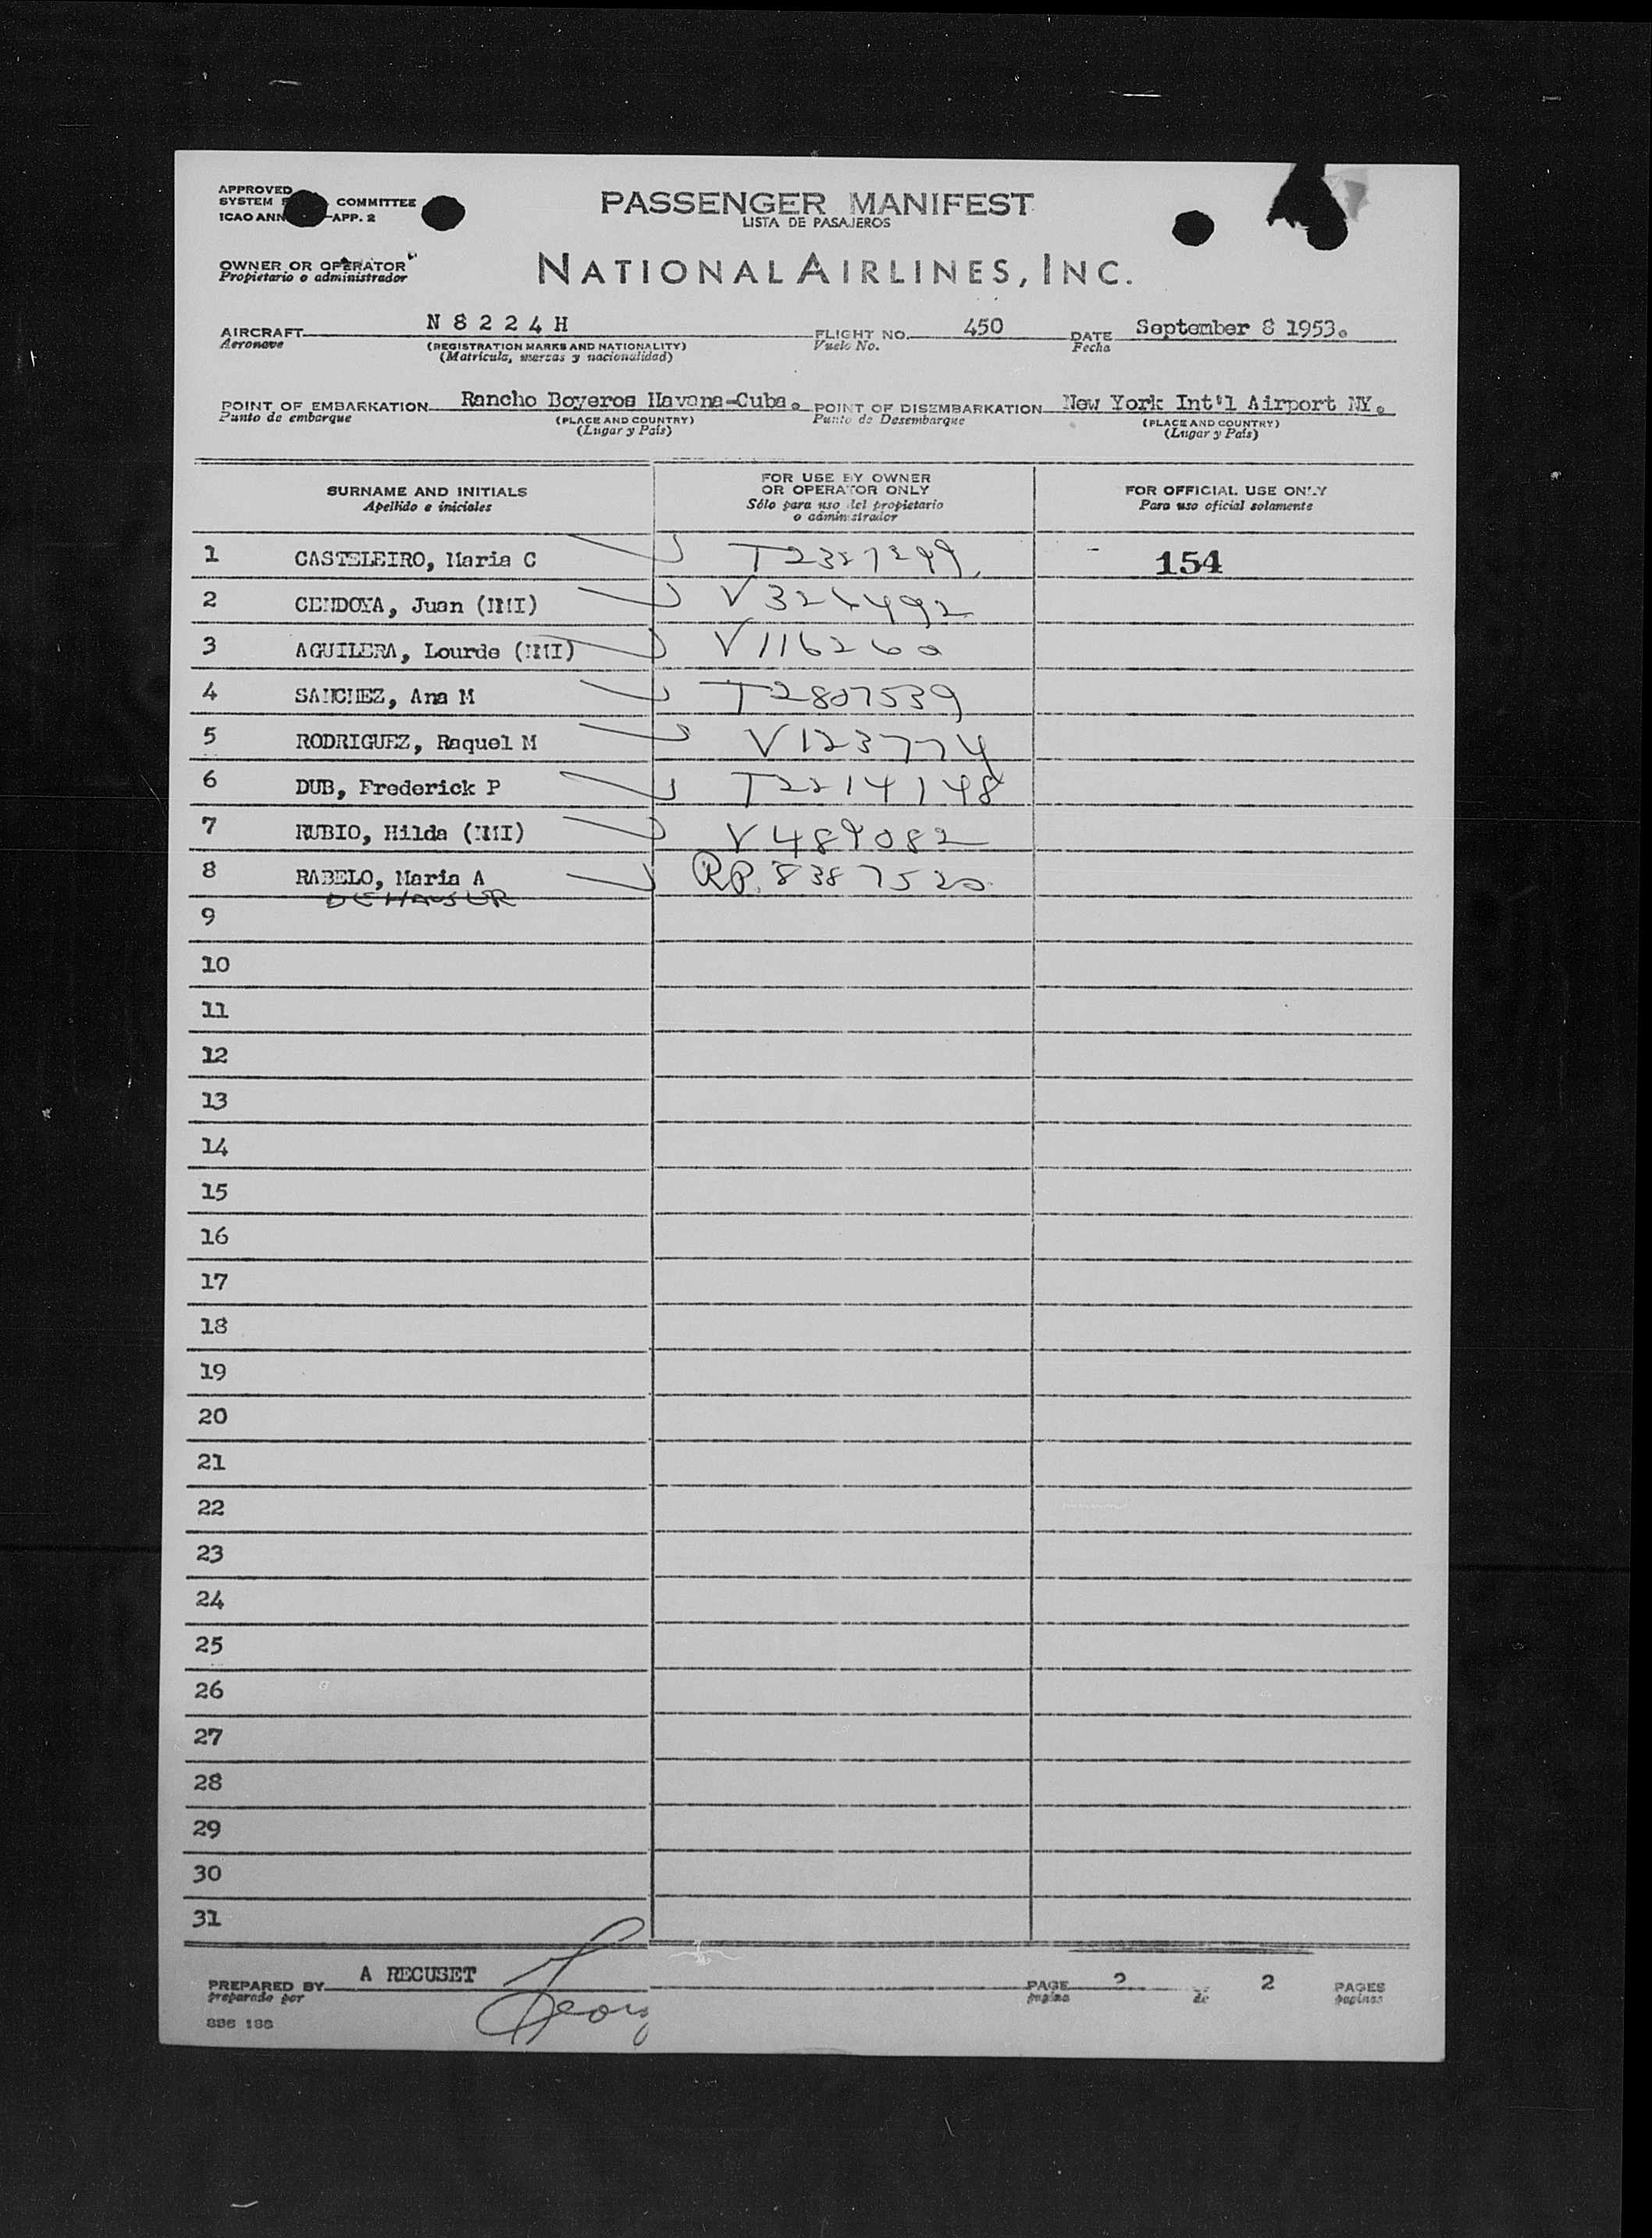 APPROVED
SYSTEM COMMITTEE
ICAO ANN APP. 2
PASSENGER MANIFEST
LISTA DE PASAJEROS
OWNER OR OPERATOR
Propietario o administrador
NATIONAL AIRLINES, INC.
AIRCRAFT N 8 2 2 4 H FLIGHT NO. 450 DATE September 8 1953.
Aeronave (REGISTRATION MARKS AND NATIONALITY) Vuelo No. Fecha
(Matrícula, marcas y nacionalidad)
POINT OF EMBARKATION Rancho Boyeros Havana-Cuba. POINT OF DISEMBARKATION New York Int'l Airport NY.
Punto de embarque (PLACE AND COUNTRY) Punto de Desembarque (PLACE AND COUNTRY)
(Lugar y País) (Lugar y País)
SURNAME AND INITIALS
Apellido e iniciales
FOR USE BY OWNER
OR OPERATOR ONLY
Sólo para uso del propietario
o administrador
FOR OFFICIAL USE ONLY
Para uso oficial solamente
1 CASTELEIRO, Maria C 154
2 CENDOYA, Juan (NMI)
3 AGUILERA, Lourde (NMI) V116260
4 SANCHEZ, Ana M T2807539
5 RODRIGUEZ, Raquel M V123774
6 DUB, Frederick P T2214148
7 RUBIO, Hilda (NMI) V489082
8 RABELO, Maria A RP. 8387520
9
10
11
12
13
14
15
16
17
18
19
20
21
22
23
24
25
26
27
28
29
30
31
PREPARED BY A RECUSET PAGE 2 2 PAGES
preparado por pagina de paginas
886 188